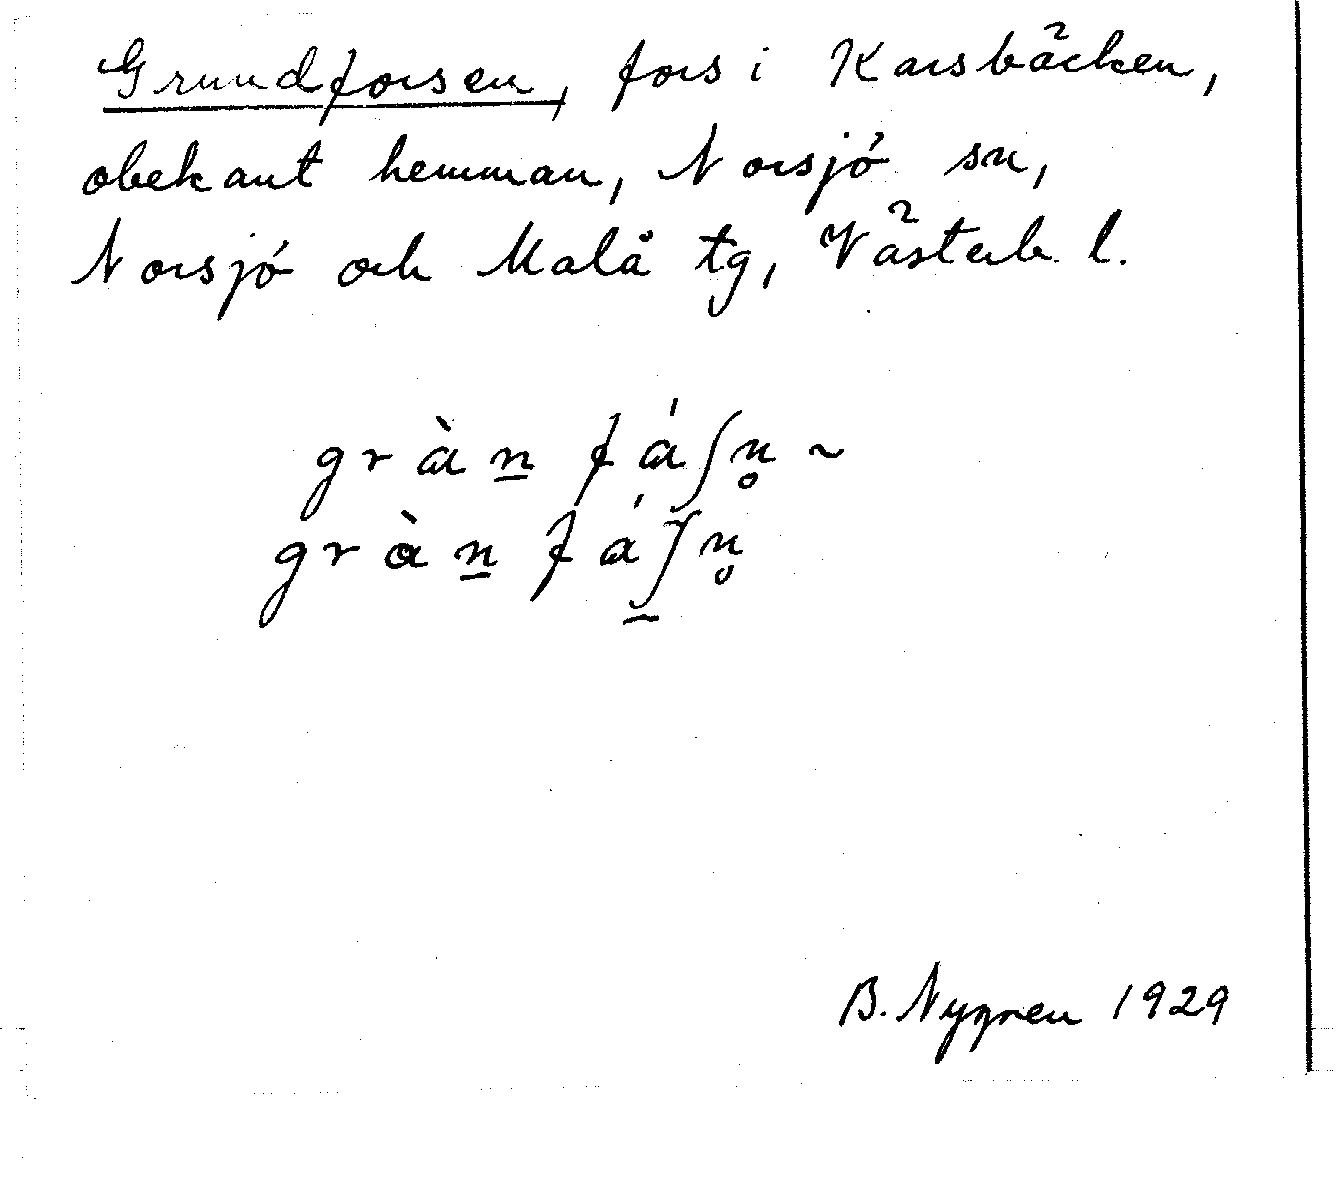 Grundforsen, fors i Karsbäcken,
obekant hemman, Norsjö sn,
Norsjö och Malå tg, Västerb. l.
gràn̲ fáʃn̥ ~
gràn̲ fáʃ̲n̥
B. Nygren 1929